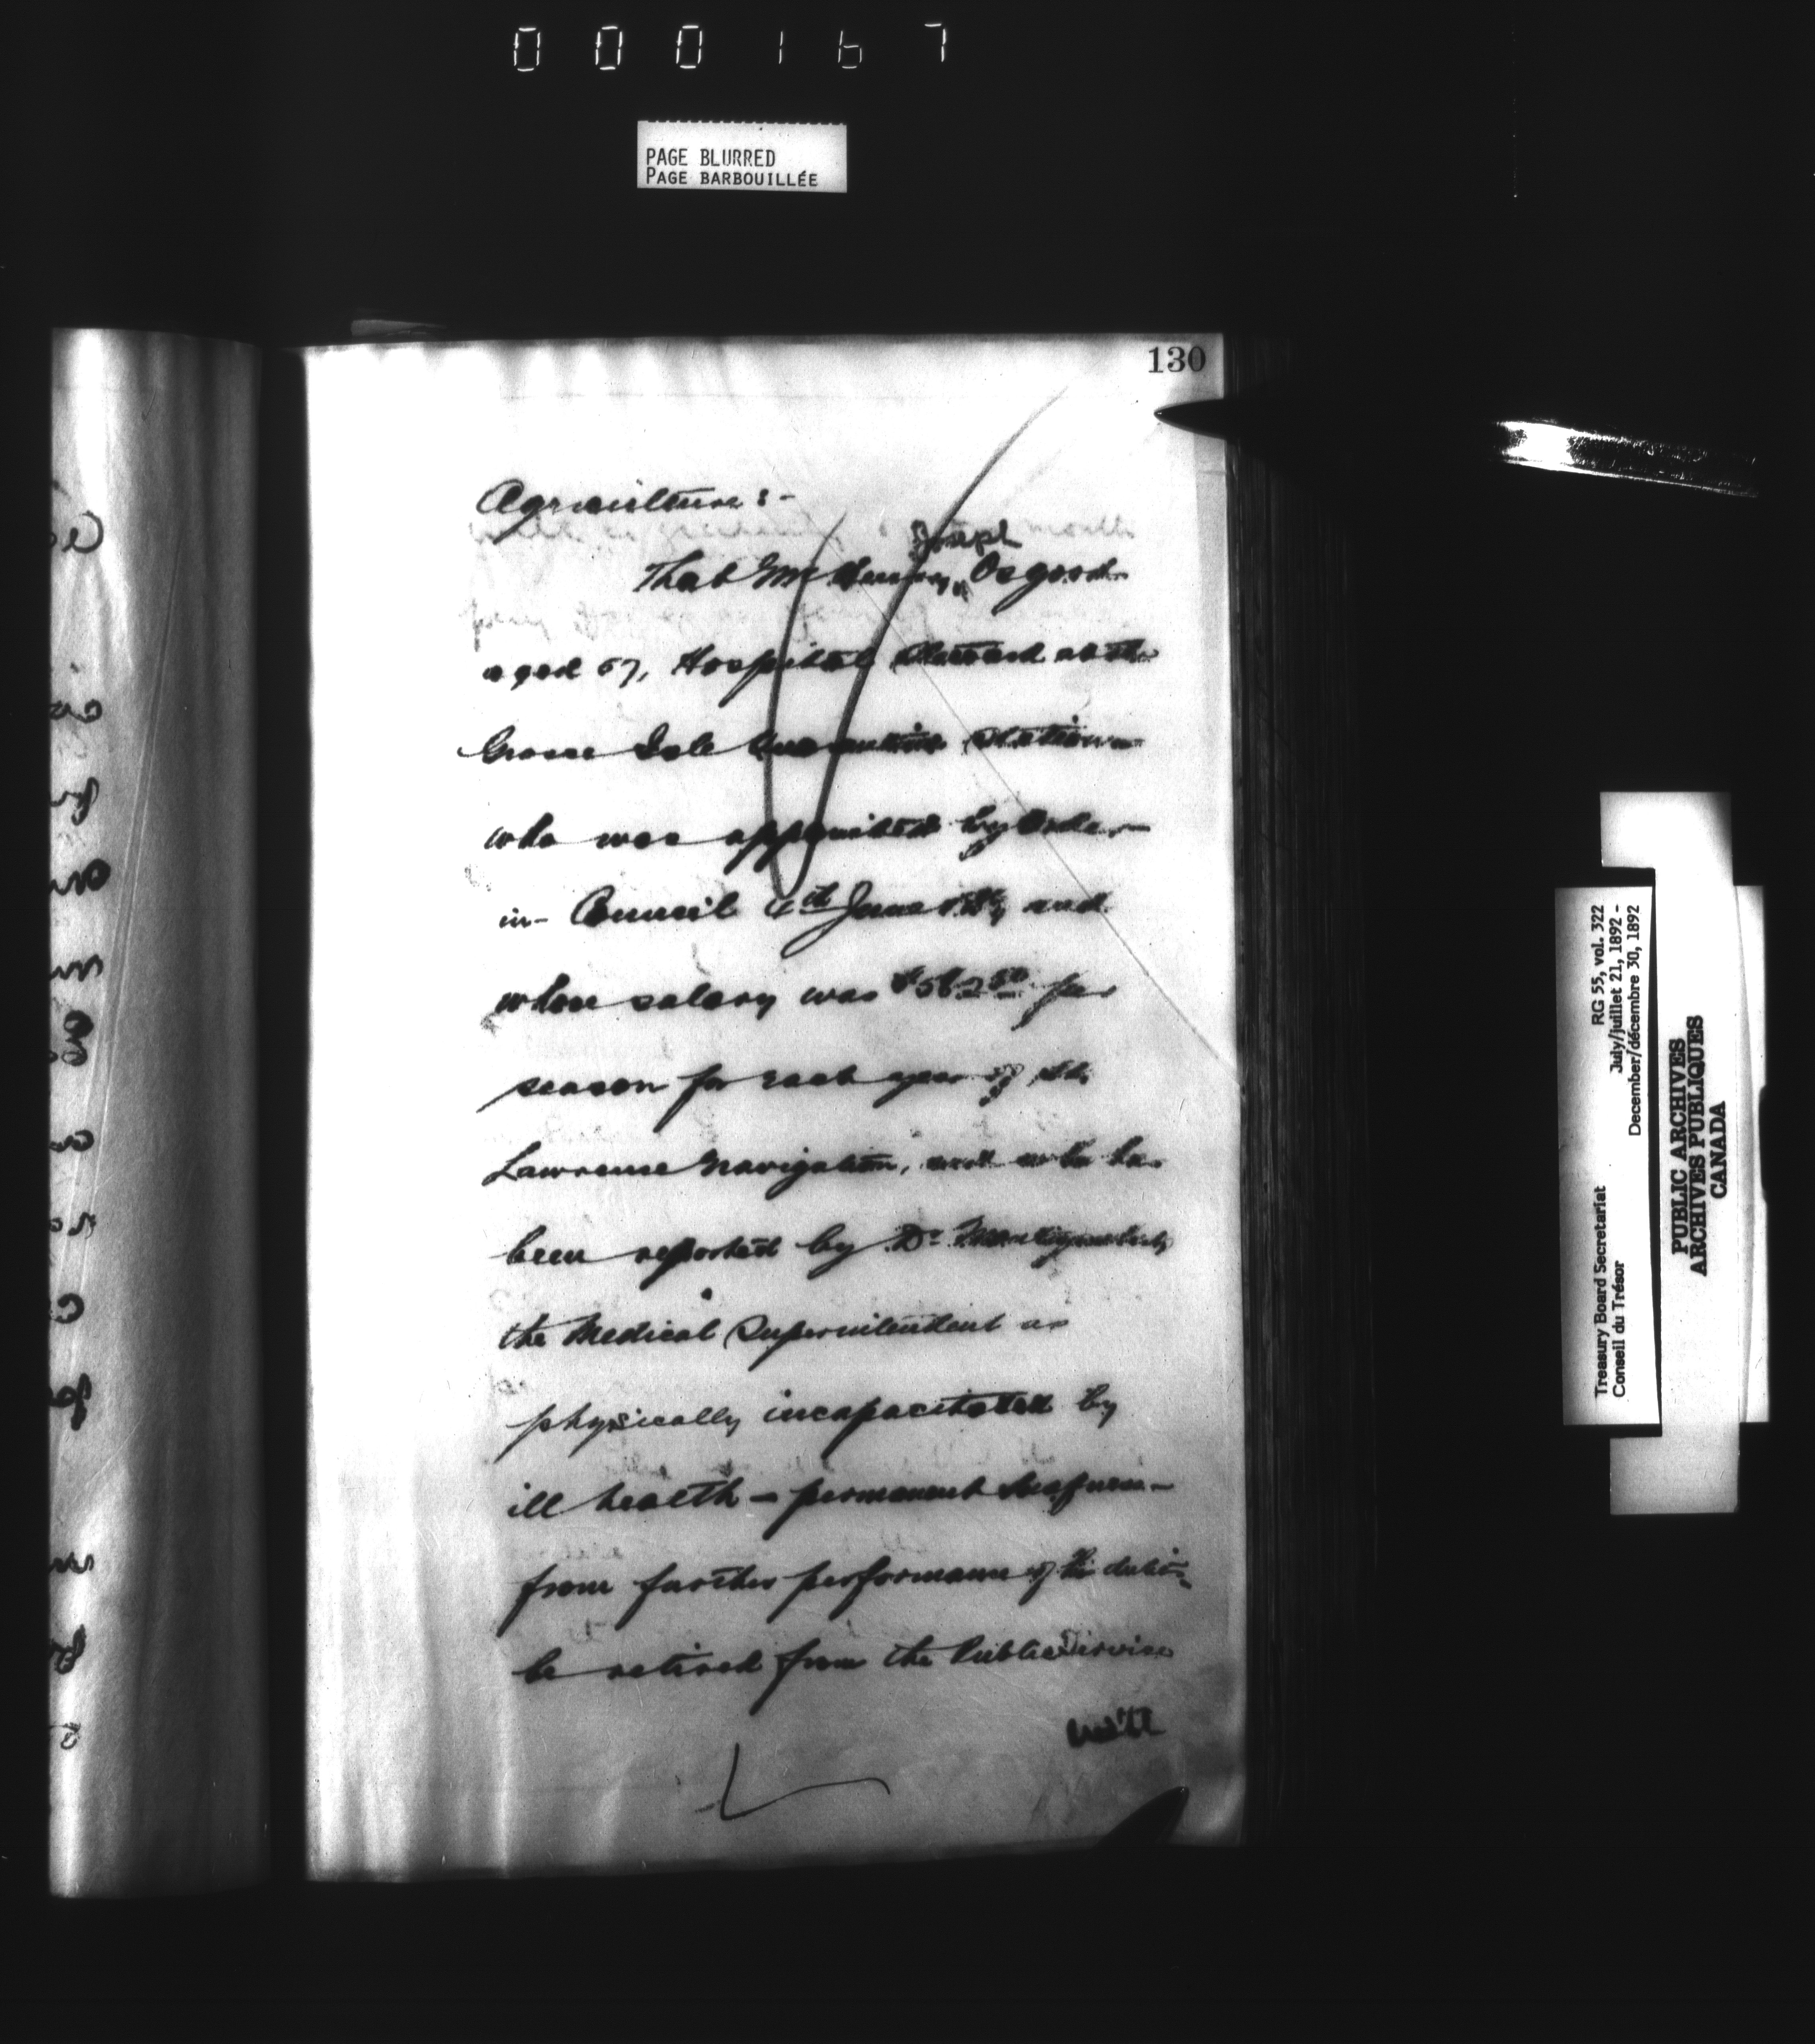 000167
PAGE BLURRED
PAGE BARBOUILLÉE
130
Agriculture:-
Joseph
That Mr Henry Osgood
aged 57, Hospital Steward at the
Grosse Isle Quarantine Station
who was appointed by Order-
in-Council 4th June and
whose salary was $562 50 per
season for each year of St.
Lawrence Navigation, and who has
been reported by Dr Montizambert,
the Medical Superintendent as
physically incapacitated by
ill health - permanent deafness -
from further performance of his duties
be retired from the Public Service
with
RG 55, vol. 322
July/juillet 21, 1892 -
December/décembre 30, 1892
Treasury Board Secretariat
Conseil du Trésor
PUBLIC ARCHIVES
ARCHIVES PUBLIQUES
CANADA